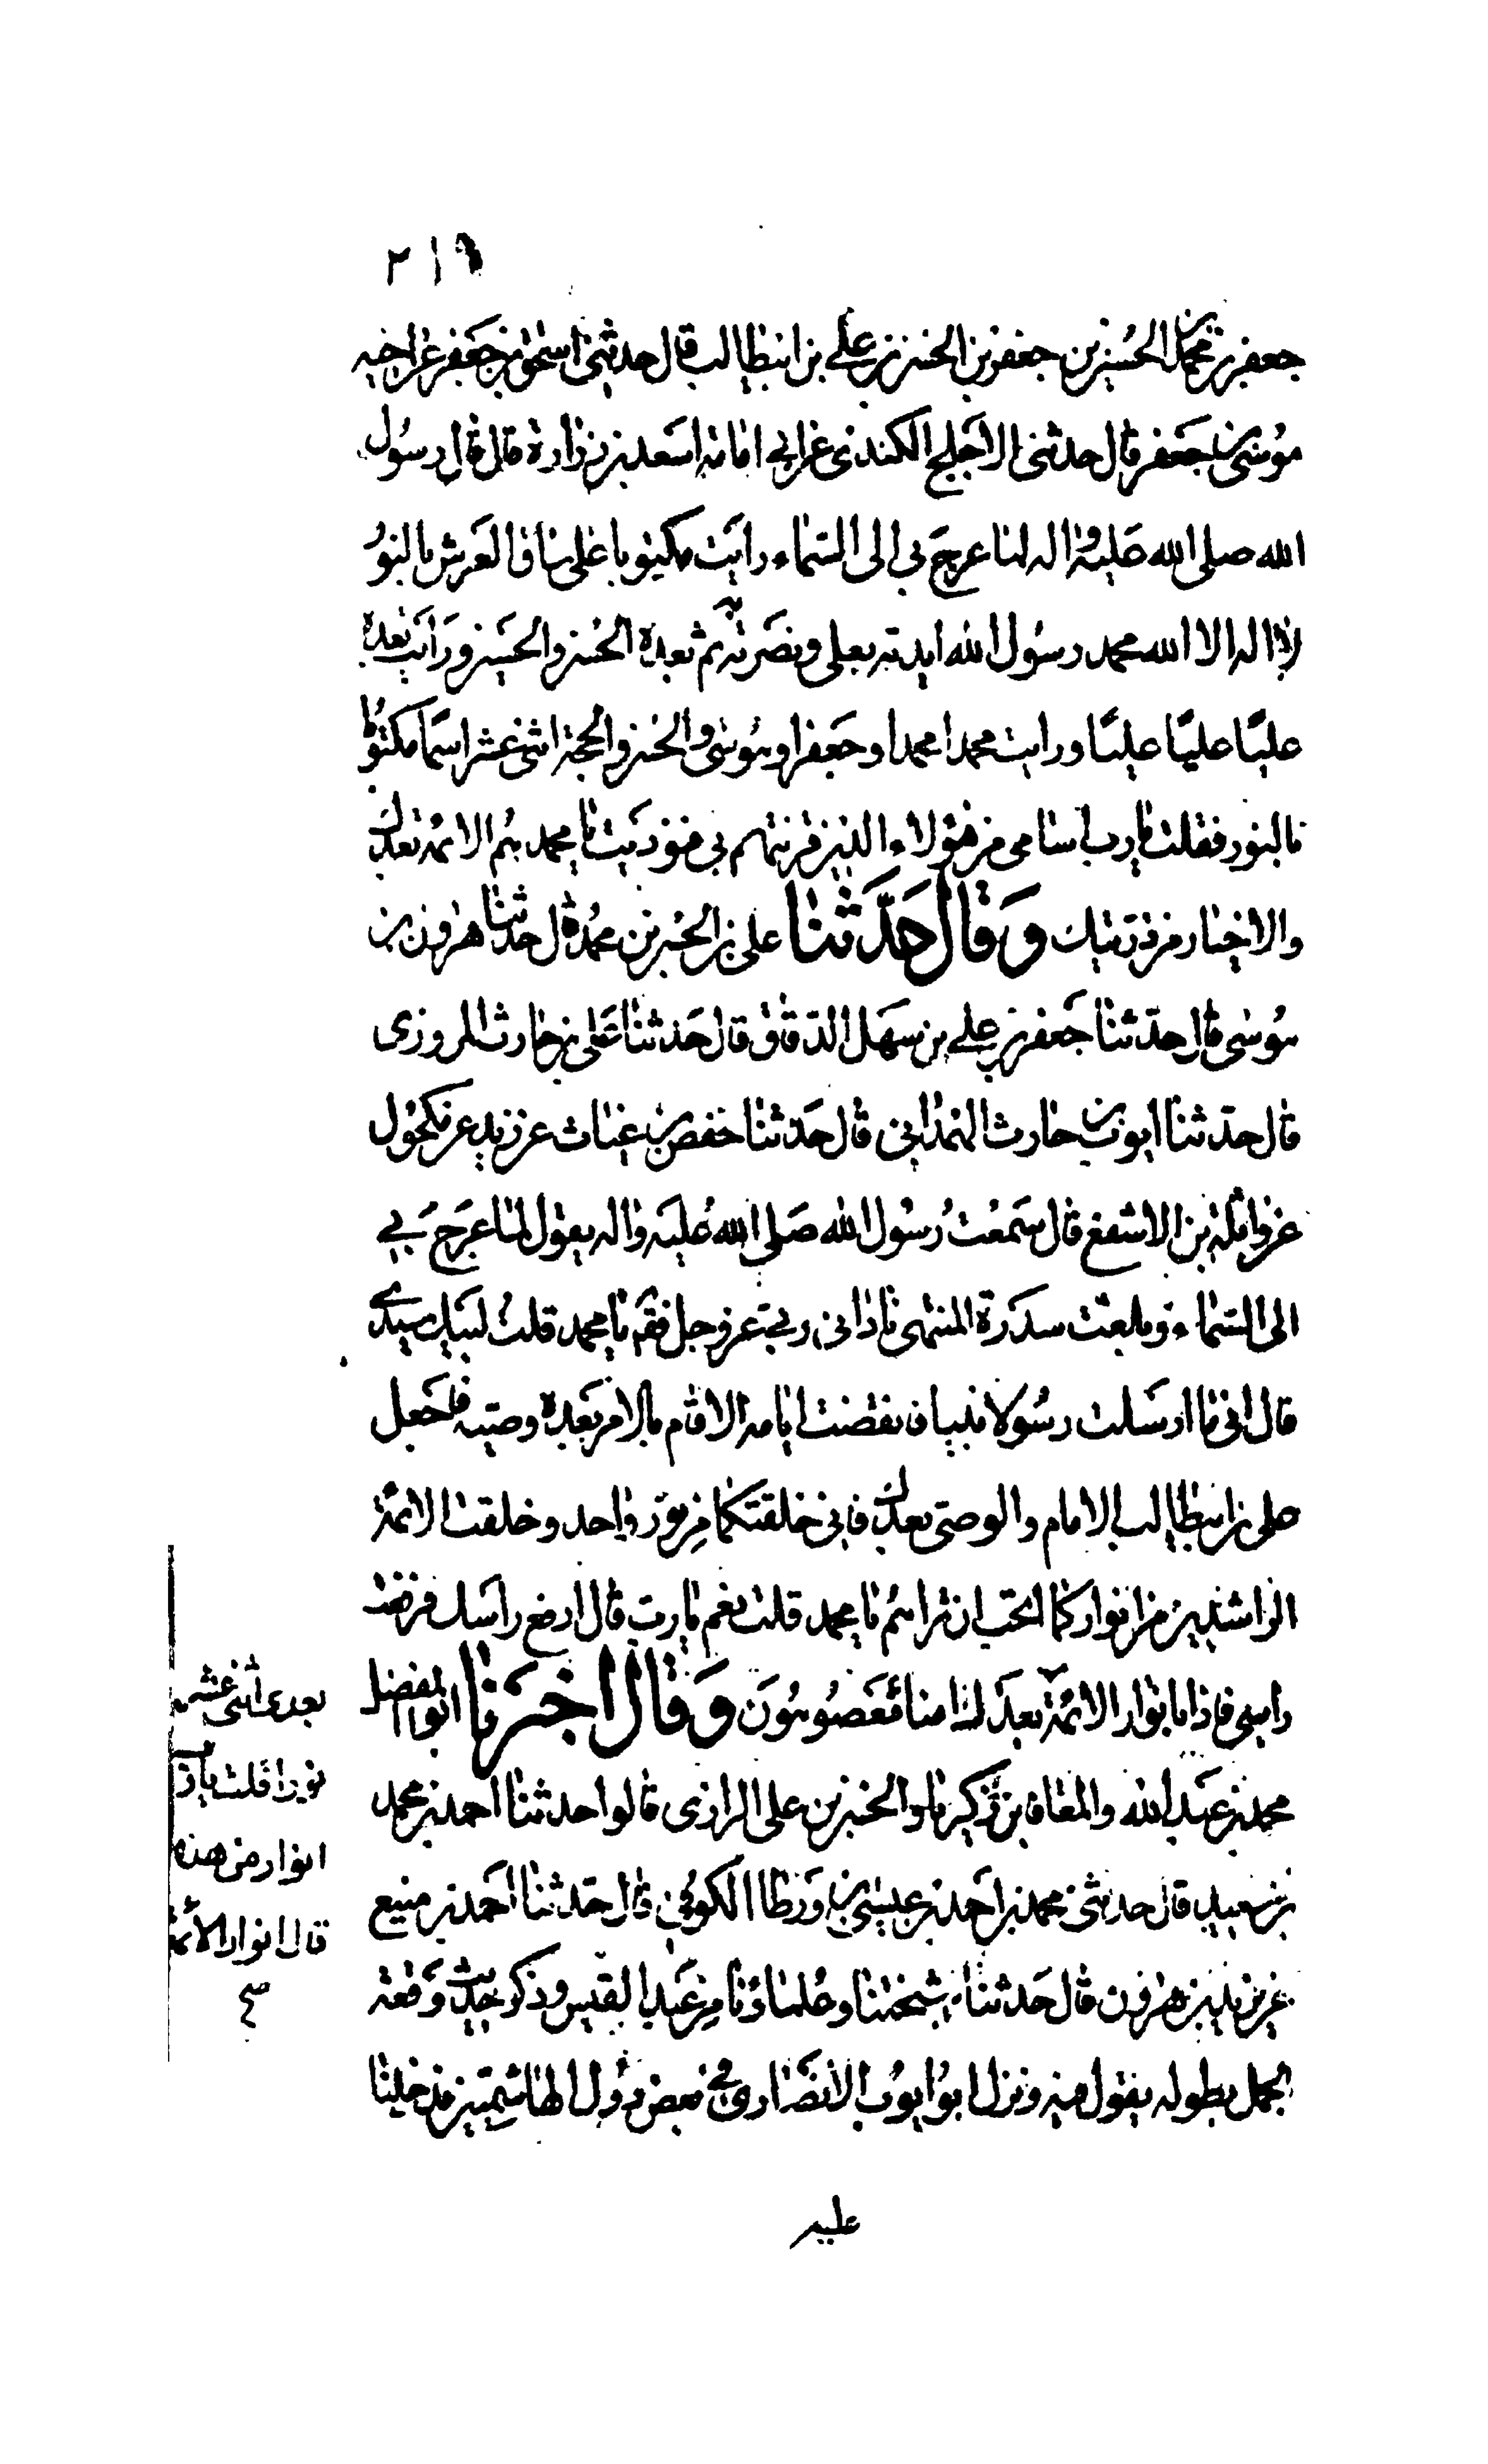 ٢١٩
جعفر بن محمد بن الحسين بن جعفر بن الحسن بن علي بن ابيطالب قال حدثني اسحق بن جعفر عن اخيه
موسى بن جعفر قال حدثني الاجلح الكندي عن ابي امامه اسعد بن زرارة قال قال رسول
الله صلى الله عليه واله لما عرج بي الى السماء رايت مكتوبا على ساق العرش بالنور
لا اله الا الله محمد رسول الله ايدته بعلي ونصرته به ثم بعده الحسن والحسين ورايت بعده
عليا عليا عليا ورايت محمدا محمدا وجعفرا وموسى والحسن والحجة اثنى عشر اسما مكتوبا
بالنور فقلت يا رب اسامى من هؤلاء الذين قرنتهم بي فنوديت يا محمد هم الائمة بعدك
والاخيار من ذريتك وقال حدثنا علي بن الحسن بن محمد قال حدثنا هرون بن
موسى قال حدثنا جعفر بن علي بن سهل الدقاق قال حدثنا علي بن حارث المروزى
قال حدثنا ايوب بن حارث الهمدانى قال حدثنا حفص بن غياث عن زيد عن مكحول
عن واثلة بن الاسقع قال سمعت رسول الله صلى الله عليه واله يقول لما عرج بي
الى السماء وبلغت سدرة المنتهى نادانى ربي عز وجل فقال يا محمد قلت لبيك سيدي
قال انى ما ارسلت رسولا نبيا فنقضت ايامه الا اقام بالامر بعده وصيه فاجعل
على بن ابيطالب الامام والوصى بعدك فانى خلقتكما من نور واحد وخلقت الائمة
الراشدين من انواركما اتحب ان تراهم يا محمد قلت نعم يا رب قال ارفع راسك فرفعت
راسي فاذا بانوار الائمة بعدك امنا معصومون وقال اخبرنا ابوالمفضل
محمد بن عبد الله والمعافا بن زكريا والحسن بن علي الرازى قالوا حدثنا احمد بن محمد
بن سعيد قال حدثني محمد بن احمد بن عيسى بن ورطا الكوفي قال حدثنا احمد بن منيع
عن يزيد بن هرون قال حدثنا مشيختنا وعلماؤنا من عبد القيس وذكر حديث وقعة
الجمل بطوله يقول فيه ونزل ابو ايوب الانصاري في بعض دول الهاشميين فدخلنا
عليه
بعده اثنى عشر
نورا قلت يا رب
انوار من هذه
قال انوار الائمة
صح